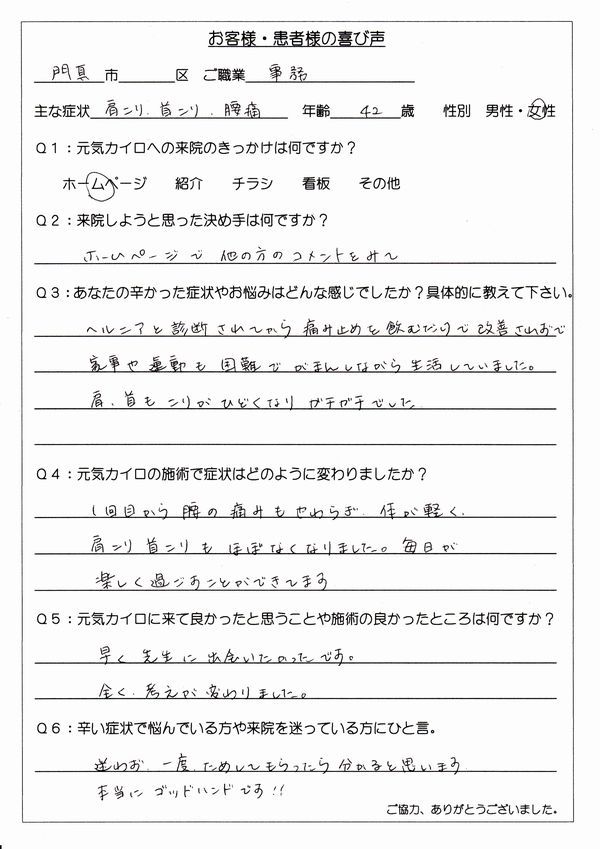 お客様・患者様の喜び声
門真 市 区 ご職業 事務
主な症状 肩こり、首こり、腰痛 年齢 42 歳 性別 男性・女性
Q1：元気カイロへの来院のきっかけは何ですか？
ホームページ 紹介 チラシ 看板 その他
Q2：来院しようと思った決め手は何ですか？
ホームページで 他の方のコメントをみて
Q3：あなたの辛かった症状やお悩みはどんな感じでしたか？具体的に教えて下さい。
ヘルニアと診断されてから 痛み止めを飲むだけで改善されおで
家事や運動も 困難で がまんしながら生活していました。
肩、首も こりが ひどくなり ガチガチでした
Q4：元気カイロの施術で症状はどのように変わりましたか？
1回目から 腰の痛みもやわらぎ、体が軽く、
肩こり 首こりも ほぼなくなりました。毎日が
楽しく過ごすことができてます
Q5：元気カイロに来て良かったと思うことや施術の良かったところは何ですか？
早く 先生に 出会いたかったです。
全く、考えが 変わりました。
Q6：辛い症状で悩んでいる方や来院を迷っている方にひと言。
迷わお、一度、ためしてもらったら 分かると思います
本当に ゴッドハンドです!!
ご協力、ありがとうございました。